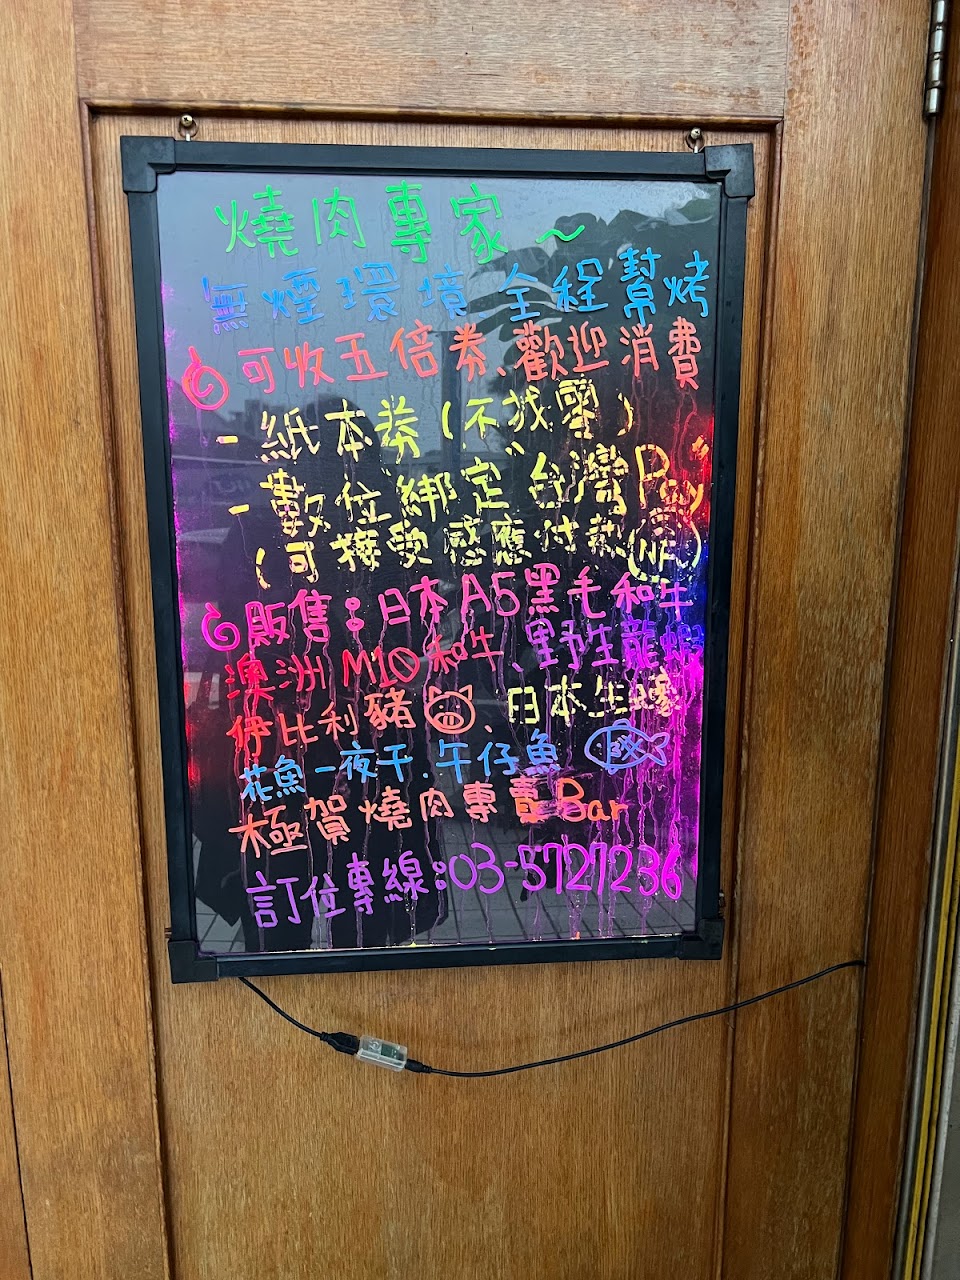 燒肉專家~
無煙環境、全程幫烤
可收五倍券、歡迎消費
-紙本券(不找零)
-數位綁定"台灣Pay"
(可接受感應付款(NFC)
販售:日本A5黑毛和牛
澳洲M10和牛、野生龍蝦
伊比利豬、日本生蠔
花魚一夜干、午仔魚
極賀燒肉專賣Bar
訂位專線:03-5727236